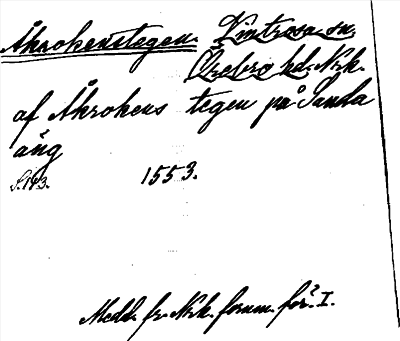 Åkrokenstegen. Vintrosa sn.
Örebro hd. Nrk.
af Åkrokens tegen på Sanda
äng
S. 143. 1553.
Medd. fr. Nrk. fornm. för. I.